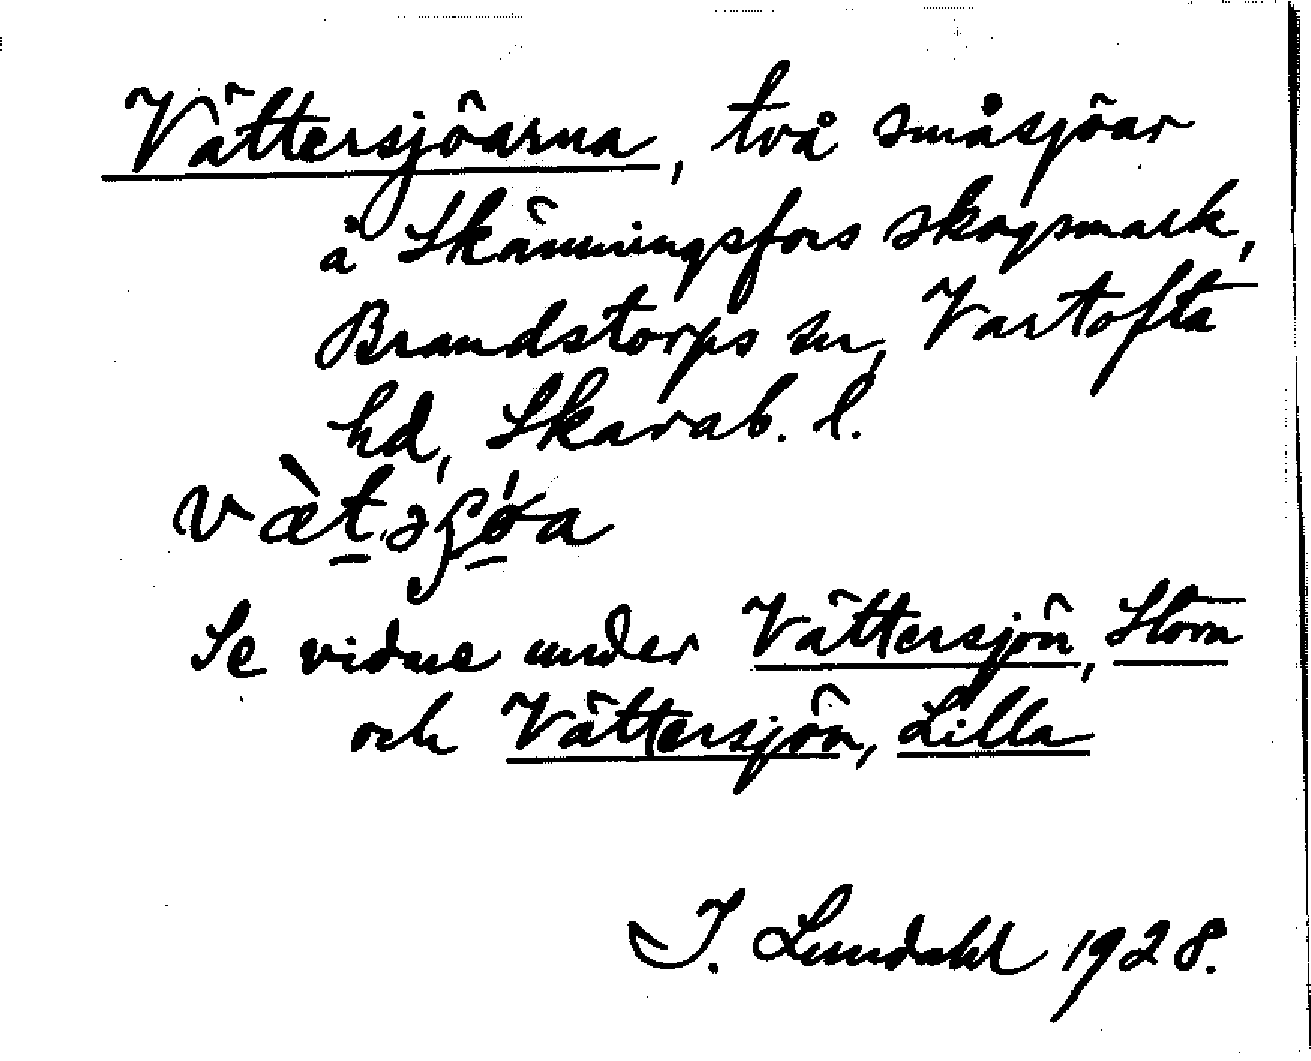 Vättersjöarna, två småsjöar
å Skämningsfors skogsmark,
Brandstorps sn, Vartofta
hd, Skarab. l.
Se vidare under Vättersjön, Stora
och Vättersjön, Lilla
I. Lundahl 1928.